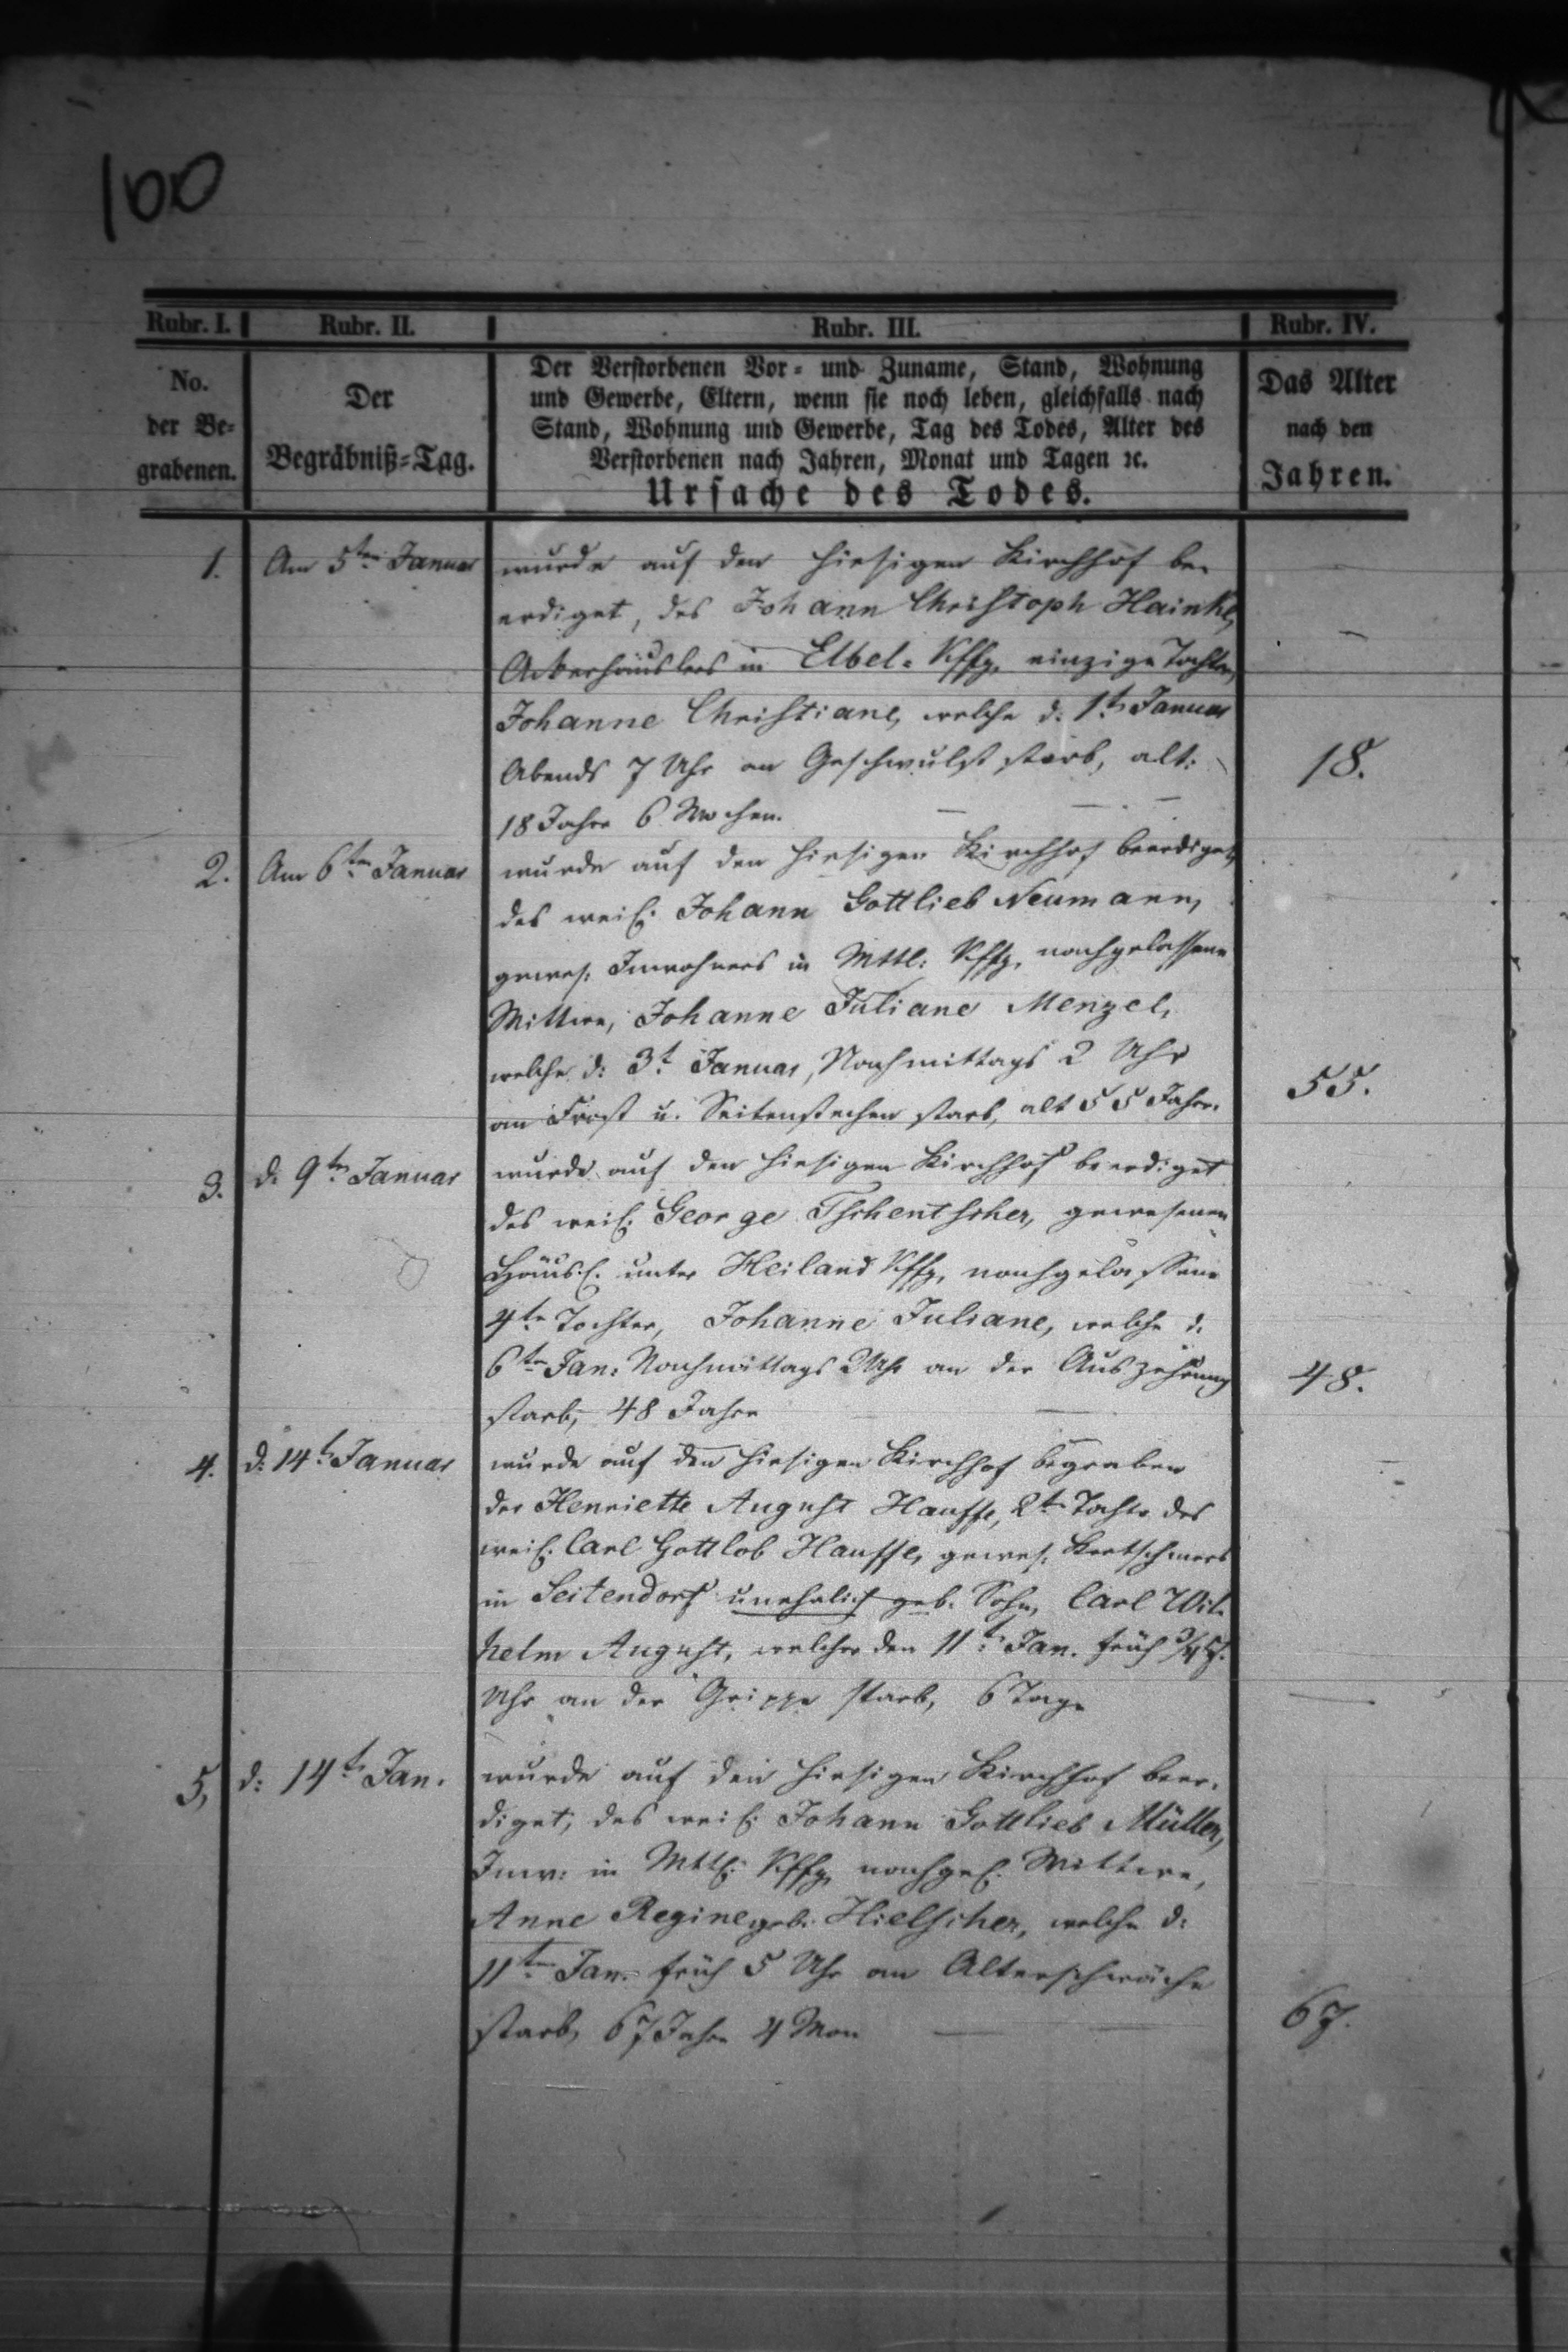 100
Rubr. I. Rubr. II. Rubr. III. Rubr. IV.
No.
der Be=
grabenen.
Der
Begräbniß=Tag.
Der Verstorbenen Vor= und Zuname, Stand, Wohnung
und Gewerbe, Eltern, wenn sie noch leben, gleichfalls nach
Stand, Wohnung und Gewerbe, Tag des Todes, Alter des
Verstorbenen nach Jahren, Monat und Tagen ꝛc.
Ursache des Todes.
Das Alter
nach den
Jahren.
1. Am 5ten Januar wurde auf den hiesigen Kirchhof be-
erdiget, des Johann Christoph Hainke,
Ackerhäuslers in Elbel-Kffg. einzige Tochter,
Johanne Christiane, welche d. 1t. Januar
Abends 7 Uhr an Geschwulst starb, alt: 18.
18 Jahre 6 Wochen.
2. Am 6ten Januar wurde auf den hiesigen Kirchhof beerdiget,
des weil. Johann Gottlieb Neumann,
gewes. Inwohners in Mttl: Kffg. nachgelassene
Wittwe, Johanne Juliane Menzel,
welche d: 3t. Januar, Nachmittags 2 Uhr
an Frost u. Seitenstechen starb, alt 55 Jahr. 55.
3. d. 9ten Januar wurde auf den hiesigen Kirchhof beerdiget
des weil. George Tschentscher, gewesenen
Häusl. unter Heiland Kffg. nachgelassene
4te Tochter, Johanne Juliane, welche d.
6ten Jan: Nachmittags 2 Uhr an der Auszehrung 48.
starb, 48 Jahre
4. d: 14t. Januar wurde auf den hiesigen Kirchhof begraben
der Henriette August Hauffe, 2te Tochter des
weil. Carl Gottlob Hauffe, gewes. Kretschmers
in Seitendorf unehelich geb. Sohn, Carl Wil-
helm August, welcher den 11t. Jan. früh
Uhr an der Grippe starb, 6 Tage
5, d: 14t. Jan. wurde auf den hiesigen Kirchhof beer-
diget, des weil. Johann Gottlieb Müller,
Inw: in Mttl. Kffg. nachgel. Wittwe,
Anne Regine geb: Hielscher, welche d:
11ten Jan. früh 5 Uhr an Altersschwäche
starb, 67 Jahre 4 Mon 67.